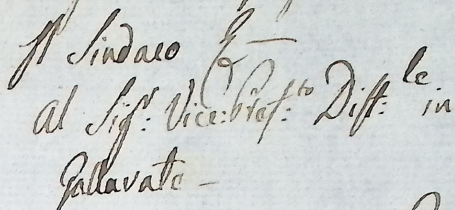 Il Sindaco
Al Sigr: Vice:Prefto: Distle: in
Gallarate -